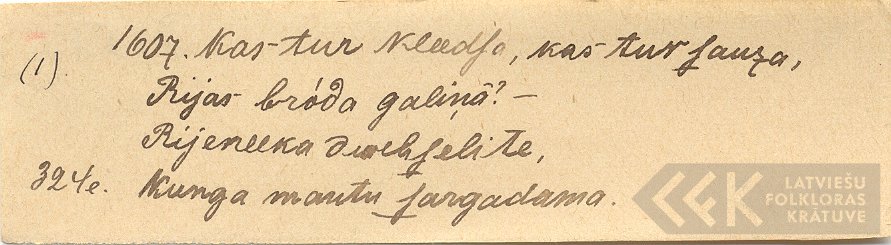 1607. Kas tur kleedsa, kas tur sauza,
(1).
Rijas bróda galiņâ? —
Rijeneeka dwehselite,
324e. Kunga mantu sargadama.
LATVIEŠU
FOLKLORAS
KRĀTUVE